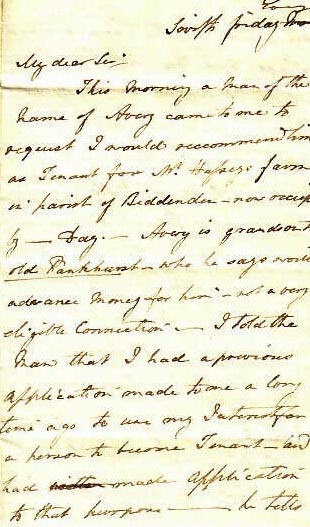 friday
My dear Sir
This Morning a Man of the
name of Avery came to me to
request I would reccommend him
as Tenant for Mr. Hussey's farm
in parish of Biddenden — now occup
by — Day. — Avery is grandson
old Pankhurst — who he says would
advance Money for him — not a very
eligible Connection — I told the
Man that I had a previous
application made to me a long
time ago to use my Interest for
a person to become Tenant — and
had made Application
to that purpose — he tells